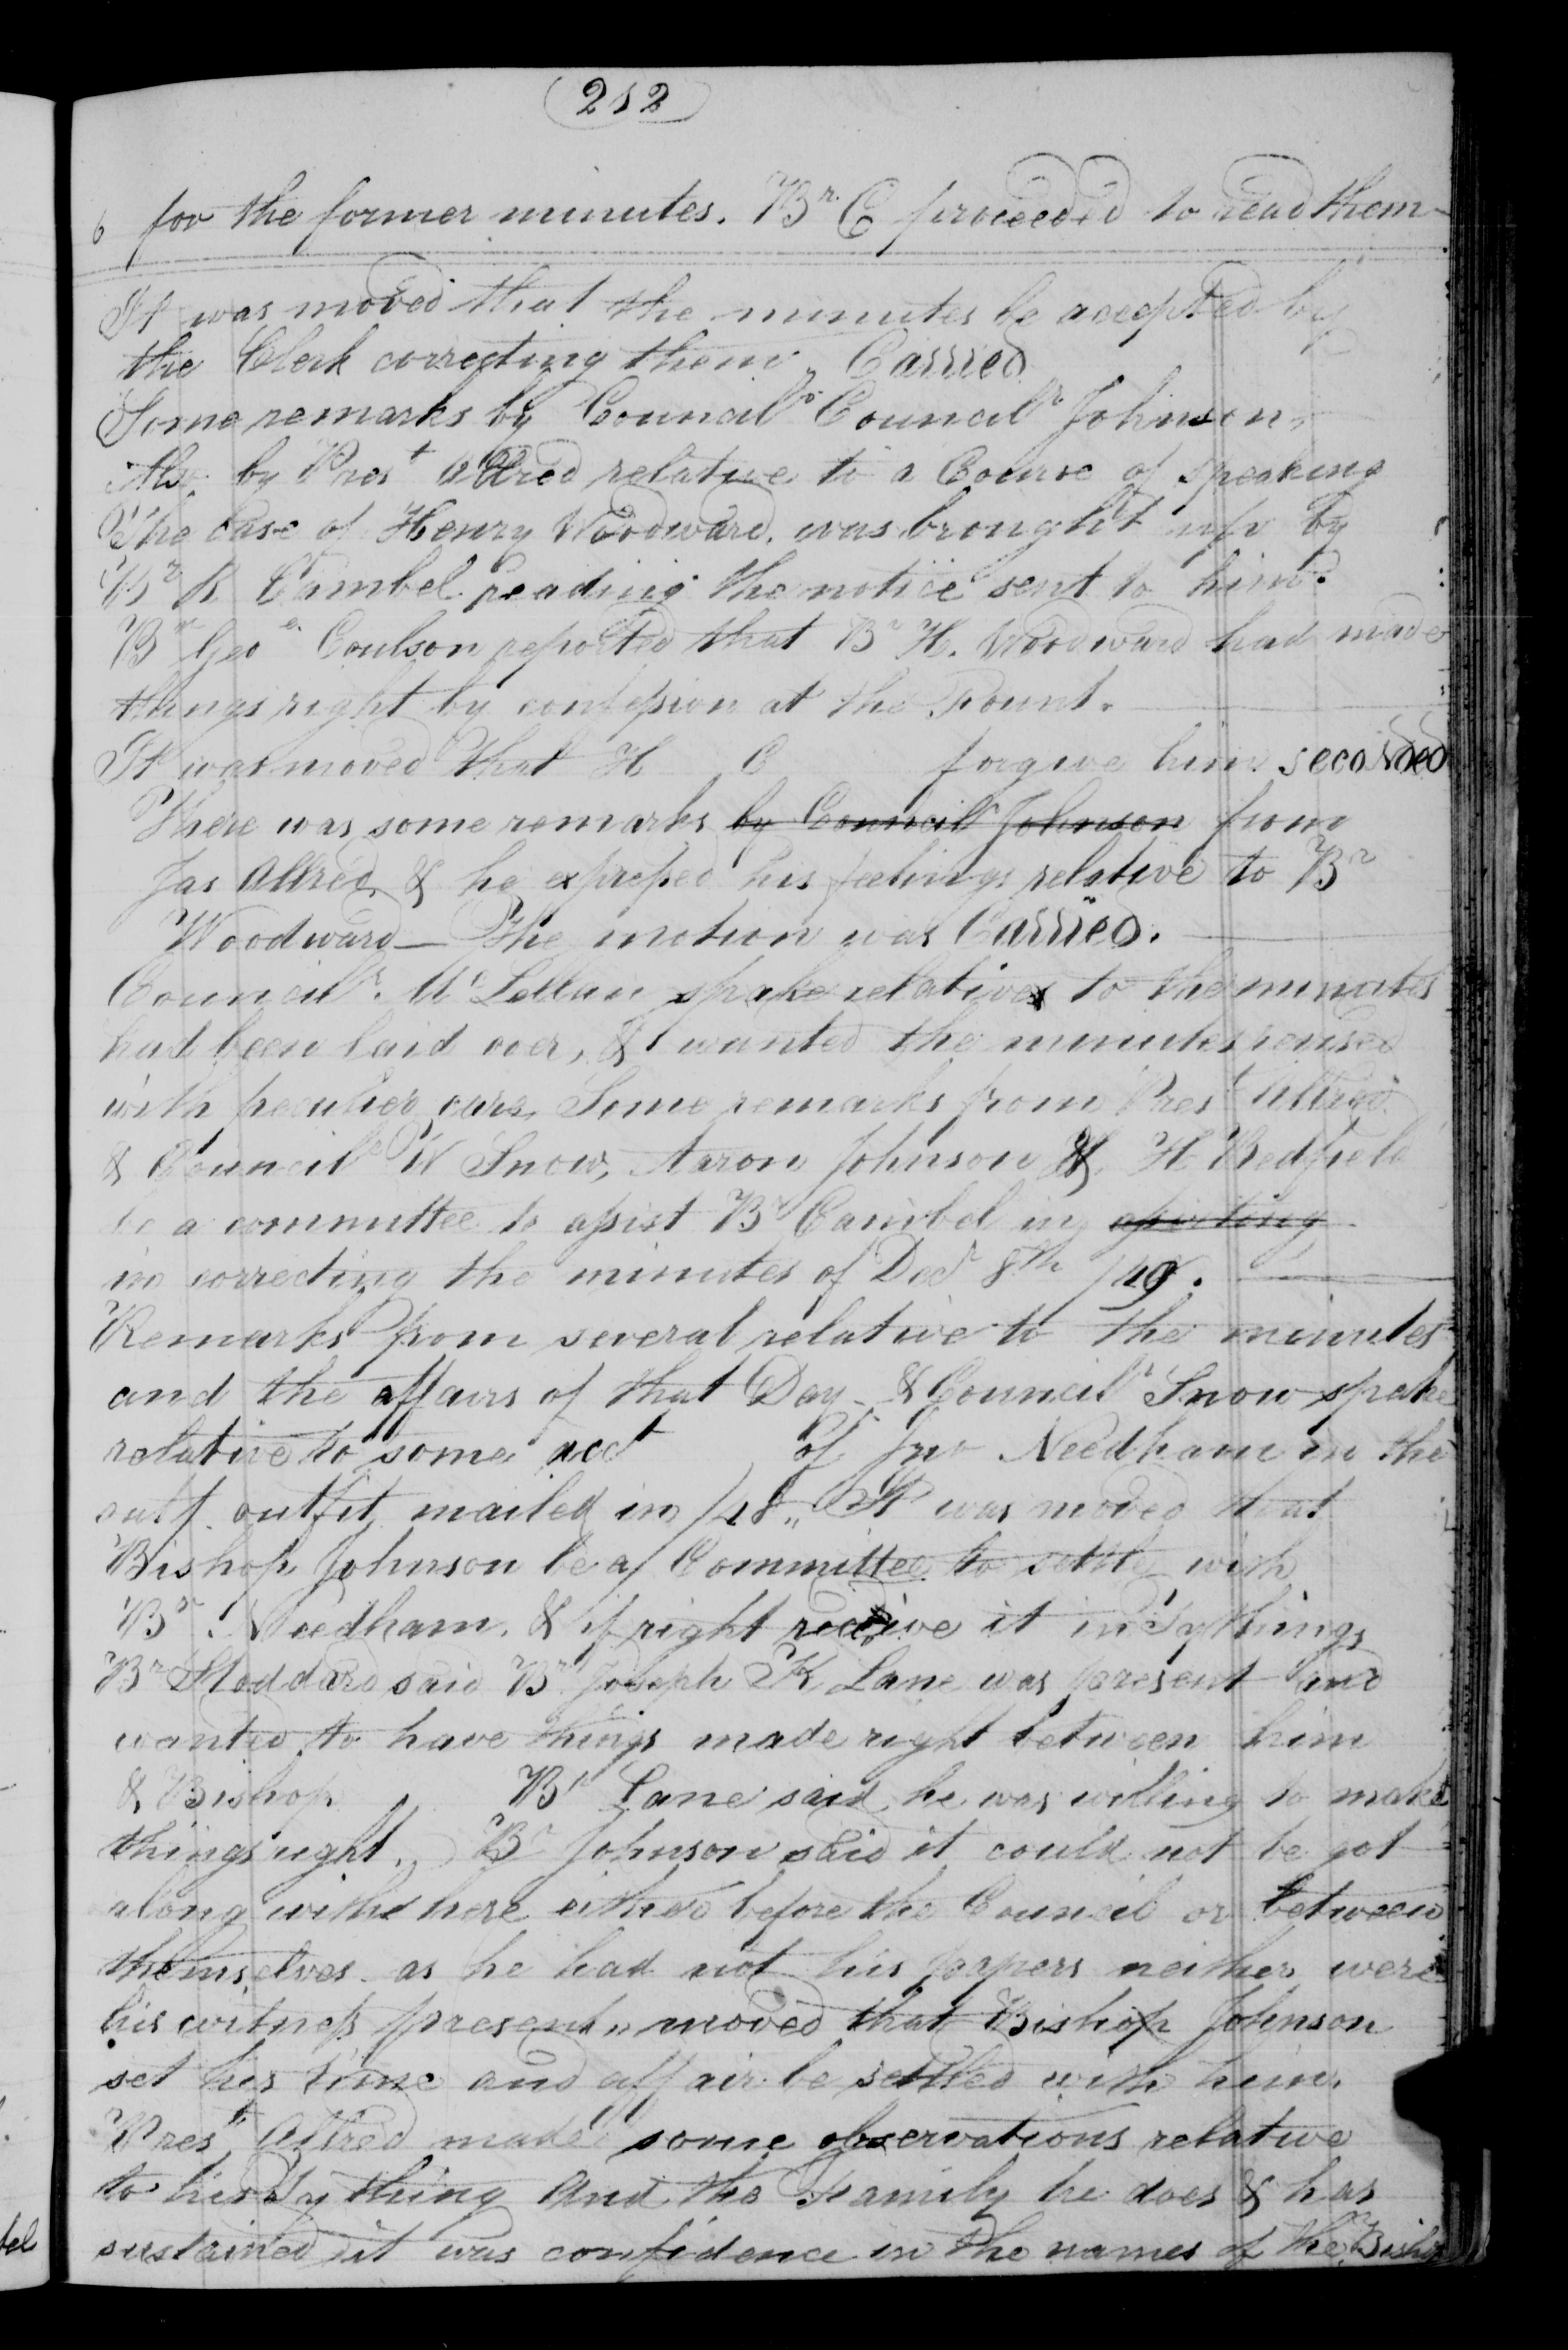 252
6 for the former minutes. Br. C proceeded to read them
It was moved that the minutes be accepted by
the Clerk correcting them, Carried
Some remarks by Councilr Councilr Johnson,
Also by Prest Allred relative to a Course of speaking
The Case of Henry Woodward. was brought up by
Br R Cambel reading the notice sent to him.
Br Geo Coulson reported that Br H. Woodward had made
things right by confession at the Fount.
It was moved that H C forgive him. seconded
There was some remarks by Councilr Johnson from
Jas Allred, & he expressed his feelings relative to Br
Woodward — The motion was Carried.
Councilr. Mc Lellan spake relative to the minutes
had been laid over, & wanted the minutes revised
with peculier care, Some remarks from Prest Allred
& Councilr W Snow, Aaron Johnson & H Redfield
be a committee to assist Br Cambel in
in correcting the minutes of Decr 8th /49.
Remarks from several relative to the minutes
and the affairs of that Day - & Councilr Snow spake
relative to some acct of Jno Needham in the
outfit mailed in /48,, It was moved that
Bishop Johnson be a Committee to settle with
Br. Needham. & if right receive it in Tythings
Br Stoddard said Br Joseph K Lane was present and
wanted to have things made right between him
& Bishop Br Lane said he was willing to make
things right. Br Johnson said it could not be got
along with here either before the Council or between
themselves. as he had not his papers neither were
his witness present,, moved that Bishop Johnson
set his time and affair be settled with him.
Prest Allred made some observations relative
to his Tything and the Family he does & has
sustained it was confidence in the names of the Bishop
tel